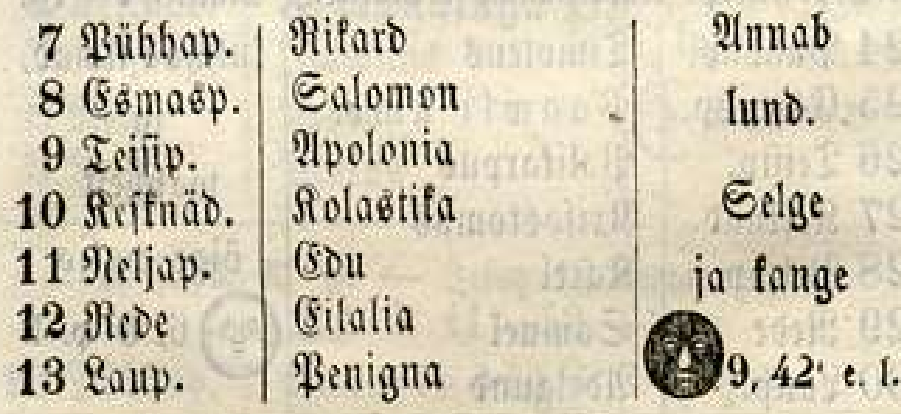 7 Pühhap. Rikard Annab
8 Esmasp. Salomon lund.
9 Teisip. Apolonia
10 Keſknäd. Kolastika Selge
11 Neljap. Edu ja kange
12 Rede Eilalia
13 Laup. Penigna 9, 42' e. l.